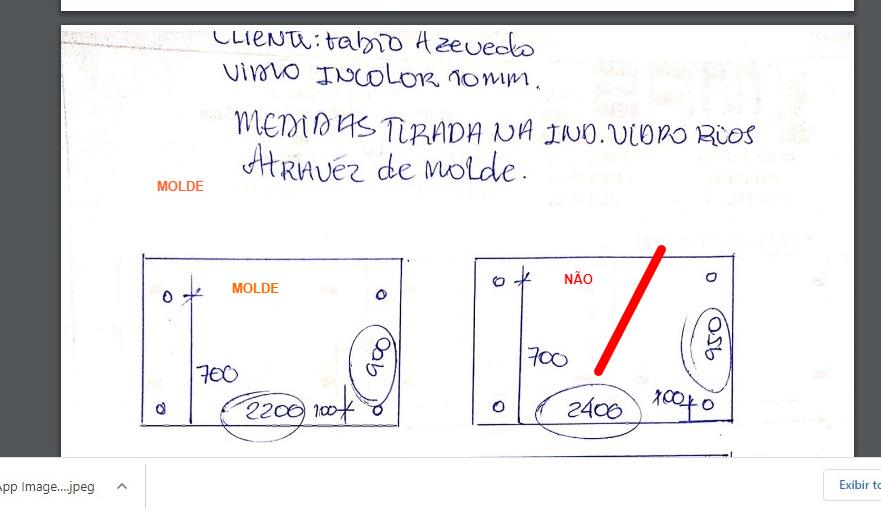 CLIENTE: Fabio Azevedo
VIDRO INCOLOR 10 mm.
MEDIDAS TIRADA NA IND. VIDRO RIOS
ATRAVÉZ de MOLDE.
MOLDE
MOLDE
700
2200
100
900
NÃO
700
2400
100
950
App Image....jpeg
Exibir to